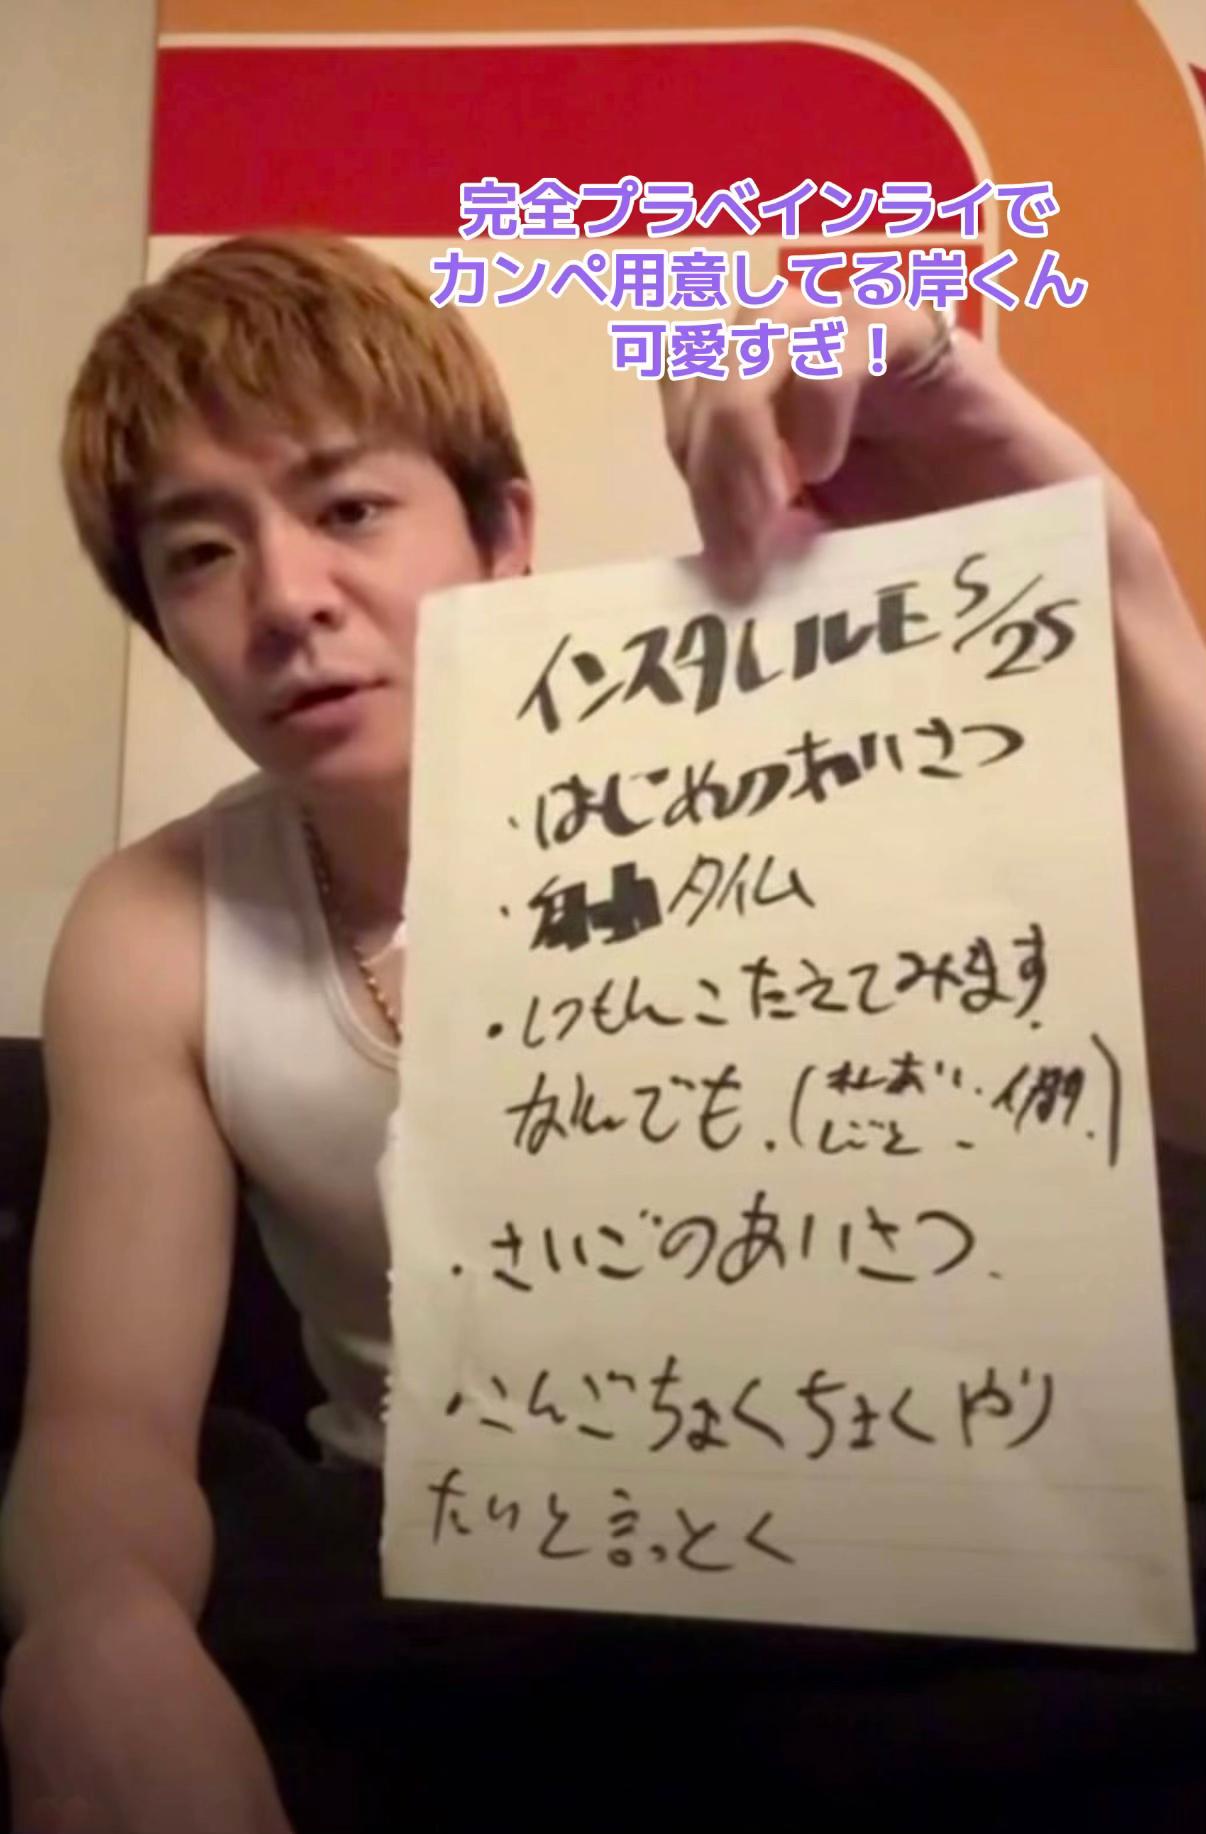 完全プラベインライで
カンペ用意してる岸くん
可愛すぎ!
インスタ 5/25
・はじめのあいさつ
・タイム
・しつもんこたえてみます.
なんでも.(れんあい.
しごと
・さいごのあいさつ.
・こんごちょくちょくやり
たいと言っとく